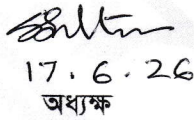 17.6.26
অধ্যক্ষ